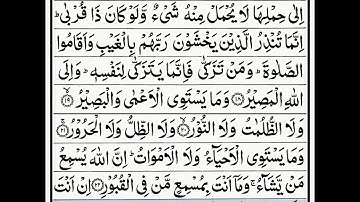 اِلٰى حِمْلِهَا لَا يُحْمَلْ مِنْهُ شَيْءٌ وَّلَوْ كَانَ ذَا قُرْبٰىؕ
اِنَّمَا تُنْذِرُ الَّذِيْنَ يَخْشَوْنَ رَبَّهُمْ بِالْغَيْبِ وَاَقَامُوا
الصَّلٰوةَؕ وَمَنْ تَزَكّٰى فَاِنَّمَا يَتَزَكّٰى لِنَفْسِهٖؕ وَاِلَى
اللّٰهِ الْمَصِيْرُ ﴿۱۸﴾ وَمَا يَسْتَوِى الْاَعْمٰى وَالْبَصِيْرُ ﴿۱۹﴾
وَلَا الظُّلُمٰتُ وَلَا النُّوْرُ ﴿۲۰﴾ وَلَا الظِّلُّ وَلَا الْحَرُوْرُ ﴿۲۱﴾
وَمَا يَسْتَوِى الْاَحْيَآءُ وَلَا الْاَمْوَاتُؕ اِنَّ اللّٰهَ يُسْمِعُ
مَنْ يَّشَآءُۚ وَمَاۤ اَنْتَ بِمُسْمِعٍ مَّنْ فِى الْقُبُوْرِ ﴿۲۲﴾ اِنْ اَنْتَ